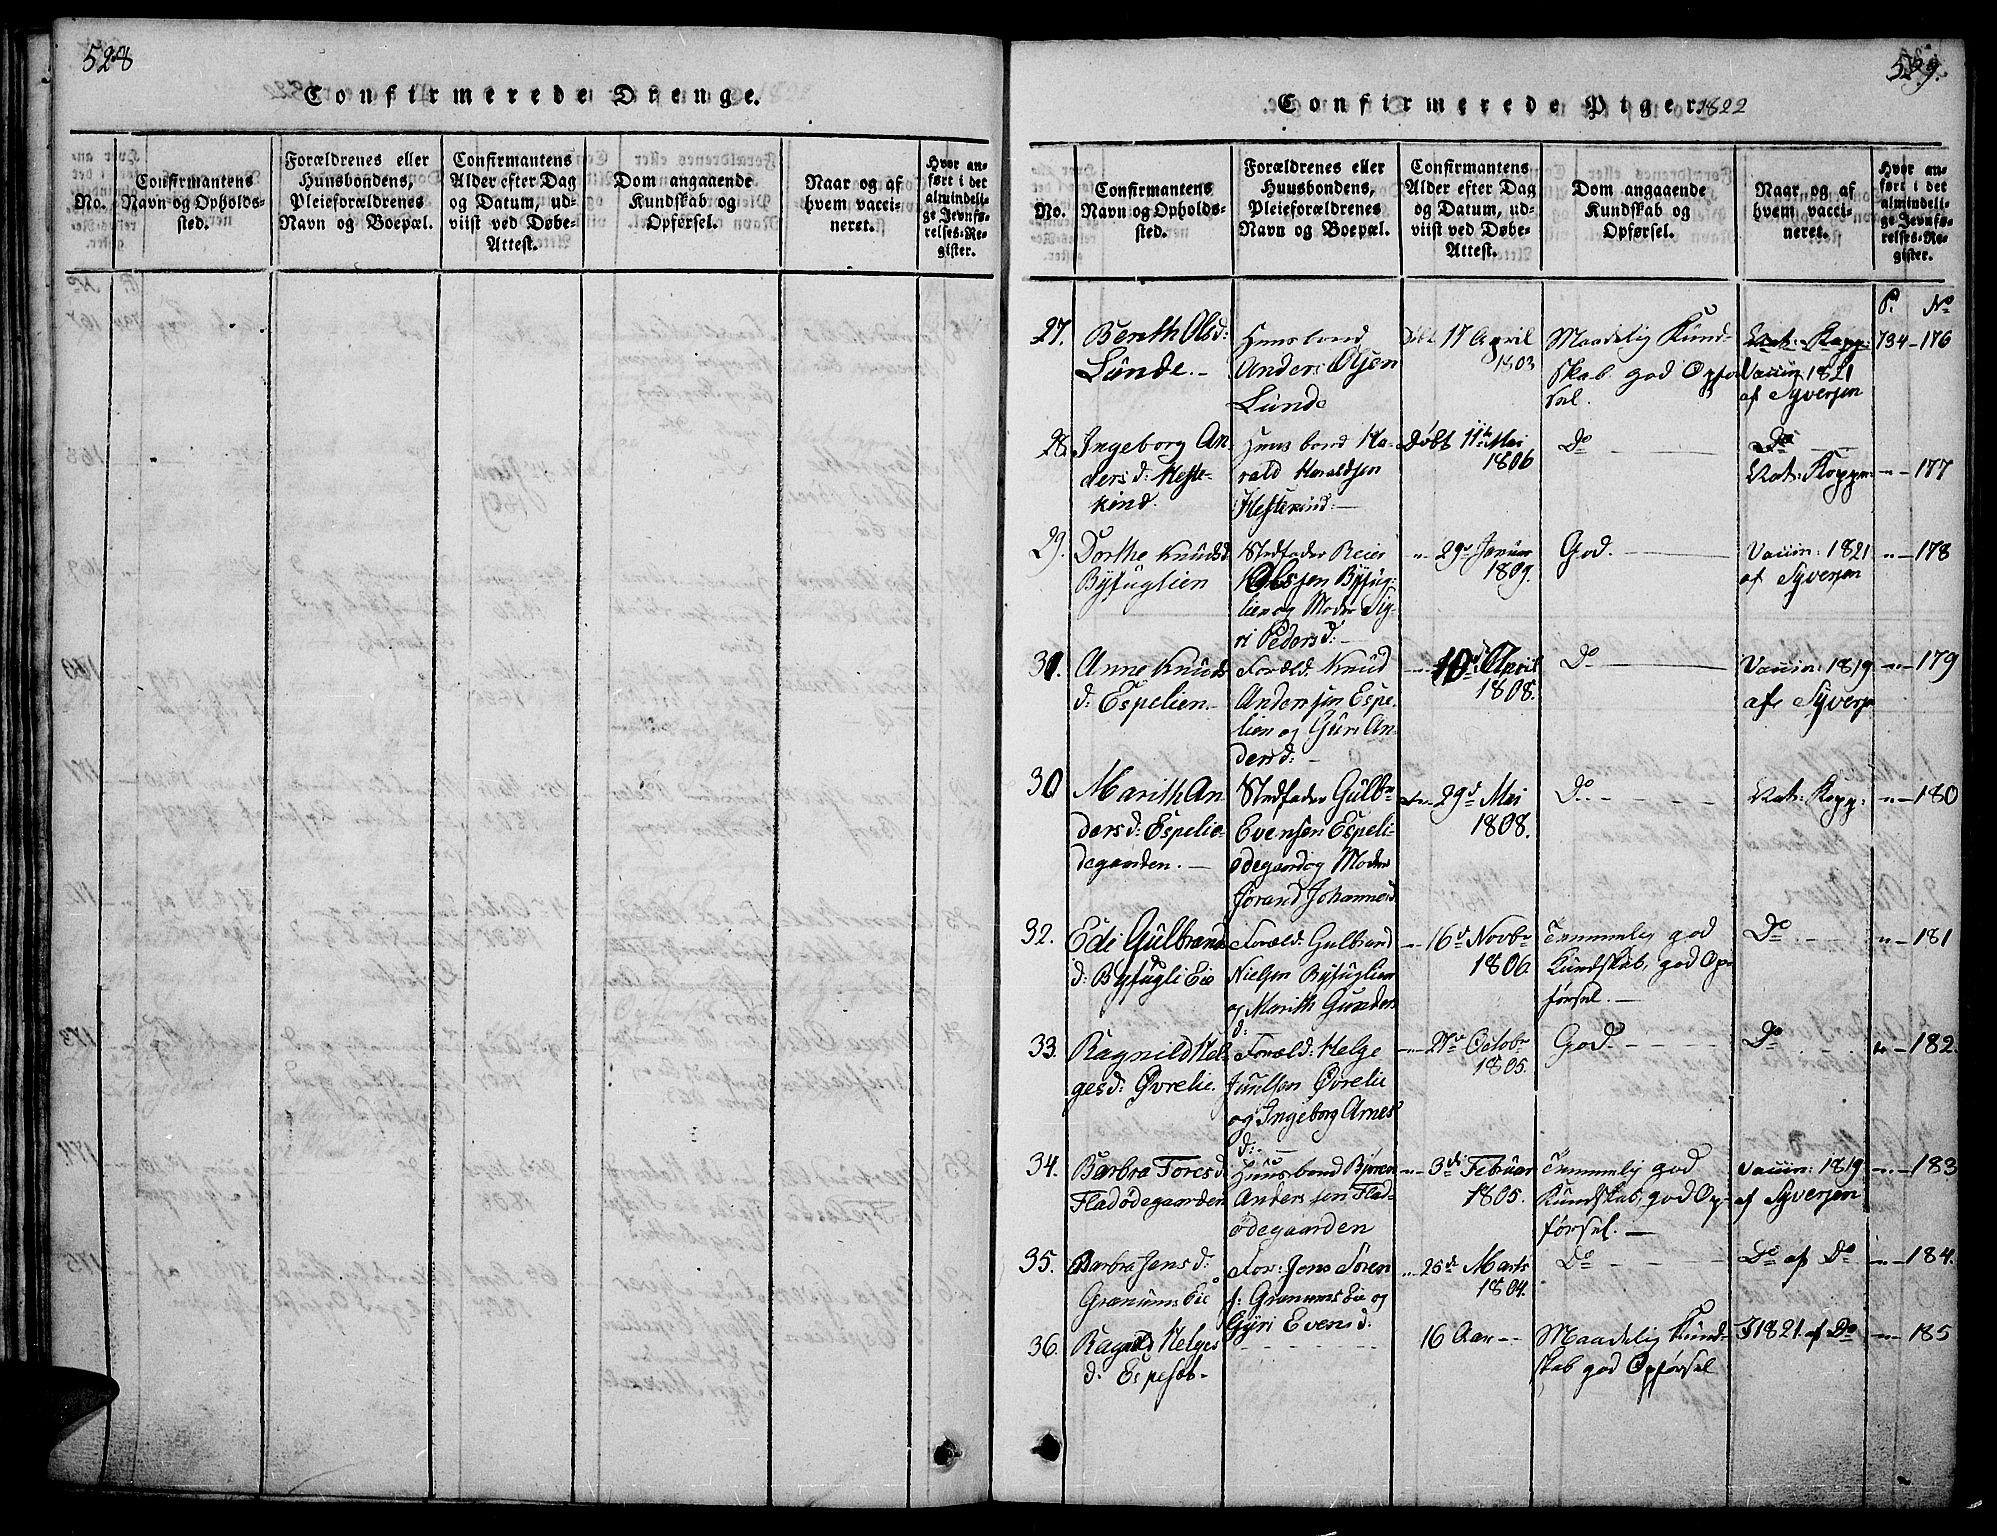 528
Confirmerede Drenge.
No.
Confirmantens
Navn og Opholds-
sted.
Forældrenes eller
Huusbondens,
Pleieforældrenes
Navn og Boepæl.
Confirmantens
Alder efter Dag
og Datum, ud-
viist ved Døbe-
Attest.
Dom angaaende
Kundskab og
Opførsel.
Naar og af
hvem vacci-
neret.
Hvor an-
ført i det
almindeli-
ge Jevnfø-
relses-Re-
gister.
529.
Confirmerede Piger 1822
No.
Confirmantens
Navn og Opholds-
sted.
Forældrenes eller
Huusbondens,
Pleieforældrenes
Navn og Boepæl.
Confirmantens
Alder efter Dag
og Datum, ud-
viist ved Døbe-
Attest.
Dom angaaende
Kundskab og
Opførsel.
Naar og af
hvem vacci-
neret.
Hvor an-
ført i det
almindeli-
ge Jevnfø-
relses-Re-
gister.
P. No
27.
Berith Olsd:
Lunde.-
Huusbond
Anders Olsen
Lunde
Døbt 17 April
1803
Maadelig Kund-
skab god Opfør
sel.
Nat: Kopp:
Vaccin: 1821
af Syversen
734-176
28.
Ingeborg An-
dersd: Heste-
kind.
Huusbond Ha-
rald Haraldsen
Hestekind:-
Døbt 11te Mai
1806
Do
Do
Nat: Kopp:
"-177
29.
Dorthe Knudsd
Byfuglien
Stedfader Reier
Olssen Byfug-
lien og Moder Sig-
ri Pedersd:-
" 29de Januar
1809.
God.
Vaccin: 1821
af Syversen
"-178
31.
Anne Knuds
d: Espelien.-
Foræld: Knud
Andersen Espe-
lien og Guri An-
dersd:-
10de April
1808.
Do
Vaccin: 1819
af Syversen
"-179
30
Marith An-
dersd: Espelie-
degaarden.-
Stedfader Gulbr
Evensen Espeli-
ødegaard og Moder
Jørand Johannesd
" 29de Mai
1808.
Do
Nat: Kopp:
"-180
32.
Edi Gulbrands
d: Byfugli Eie
Foræld: Gulbrand
Nielsen Byfuglien
og Marith Gunders
d:-
" 16de Novbr
1806.
Temmelig god
Kundskab, god Op-
førsel.-
Do
"-181
33.
Ragnild Hel-
gesd: Øvrelie.
Foræld: Helge
Juulsen Øvrelie
og Ingeborg Arnes
d:-
" 27de Octobr
1805.
God
Do
"-182.
34.
Barbra Toresd:
Fladødegaarden
Huusbond Bjøren
Andersen Flad-
ødegaarden
" 3de Februar
1805.
Temmelig god
Kundskab, god Op-
førsel.-
Vaccin: 1819
af Syversen
"-183
35.
Barbra Jensd:
Grønums Eie
For: Jens Søren
s: Grønums Eie og
Gyri Evensd:
" 25de Marts
1804.
Do
Do af Do
"-184.
36.
Ragnild Helges
d: Espeset-
16 Aar
Maadelig Kund-
skab god Opførsel
I 1821 af Do
"-185